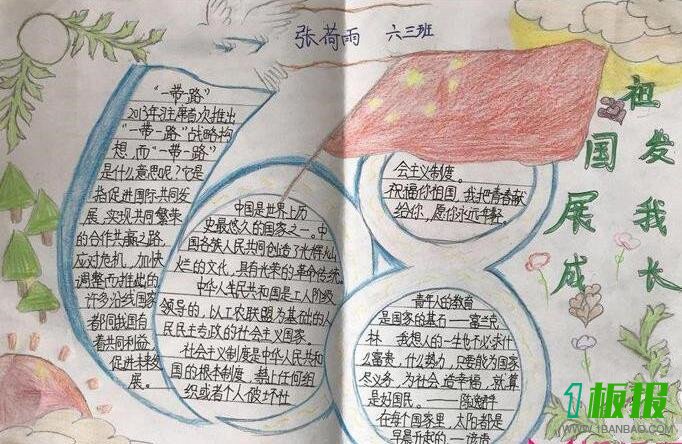 张荷雨 六三班
祖国发展我成长
"一带一路"
2013年习主席首次推出
"一带一路"战略构
想,而"一带一路"
是什么意思呢?它是
指促进国际共同发
展,实现共同繁荣
的合作共赢之路,
应对危机,加快
调整而推出的
许多沿线国家
都同我国有
着共同利益。
促进未来发
展。
中国是世界上历
史最悠久的国家之一。中
国各族人民共同创造了光辉灿
烂的文化,具有光荣的革命传统
中华人民共和国是工人阶级
领导的,以工农联盟为基础的人
民民主专政的社会主义国家。
社会主义制度是中华人民共和
国的根本制度,禁止任何组
织或者个人破坏社
会主义制度。
祝福你祖国,我把青春献
给你,愿你永远年轻。
青年人的教育
是国家的基石——富兰克
林 我想人的一生也不必求什
么富贵,什么势力,只要能为国家
尽义务,为社会造幸福,就算
是好国民。——陶
在每个国家里,太阳都是
早晨升起的——谚语
1板报
WWW.1BANBAO.COM